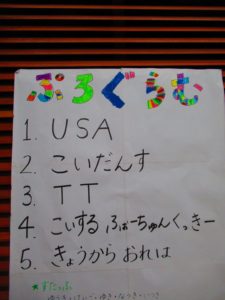 ぷろぐらむ
1. USA
2. こいだんす
3. TT
4. こいする ふぉーちゅんくっきー
5. きょうから おれは
★すたっふ